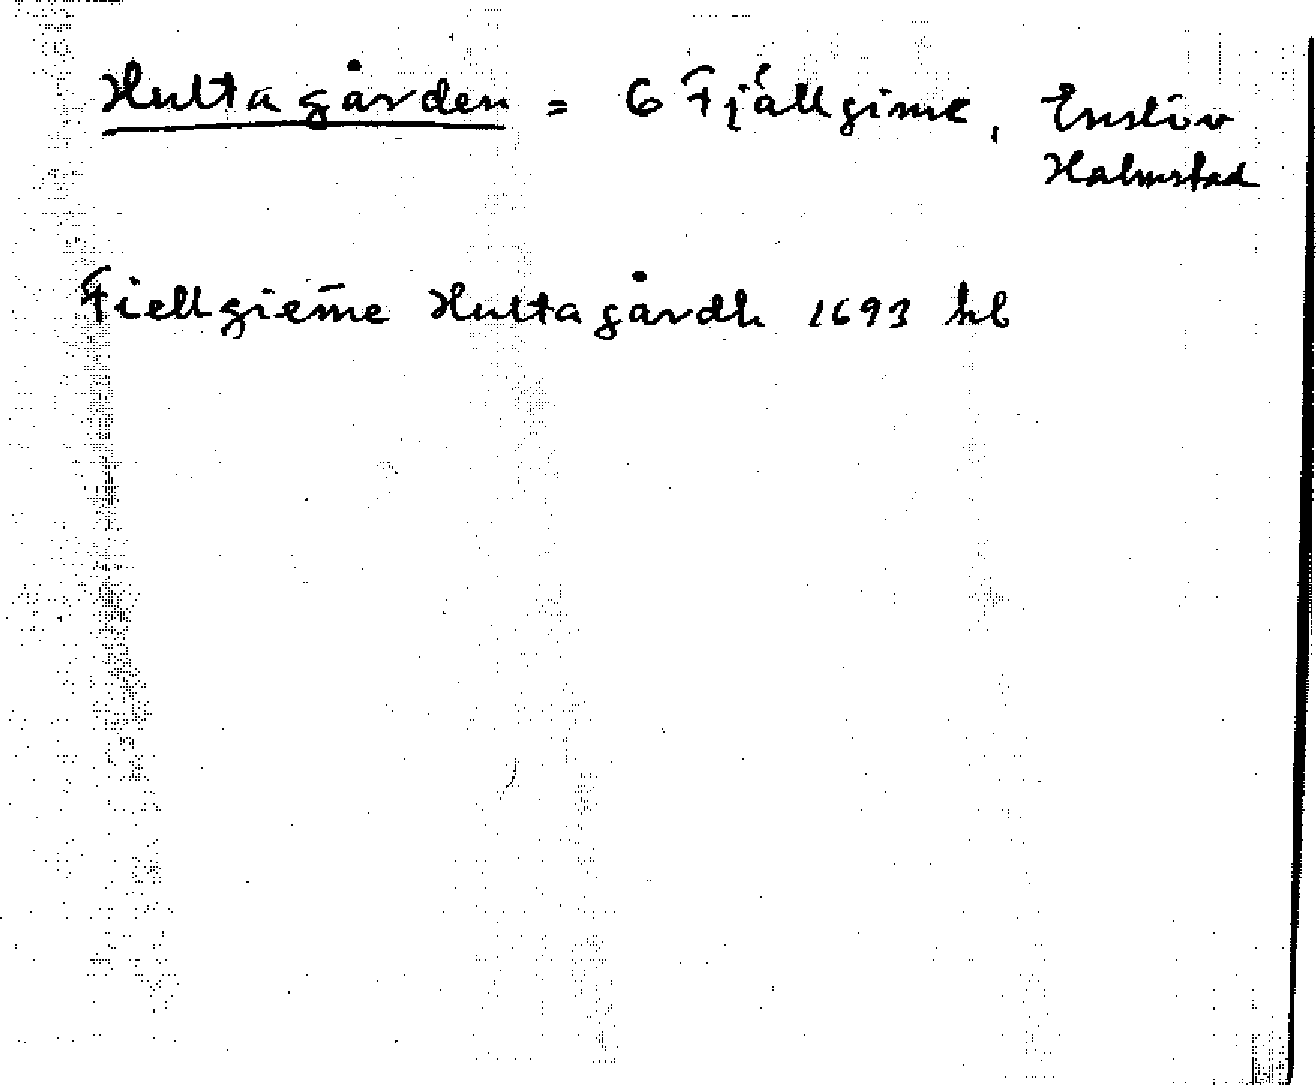 Hultagården = 6 Fjällgime, Enslöv
Halmstad
Fiellgieme Hultagårdh 1693 hl